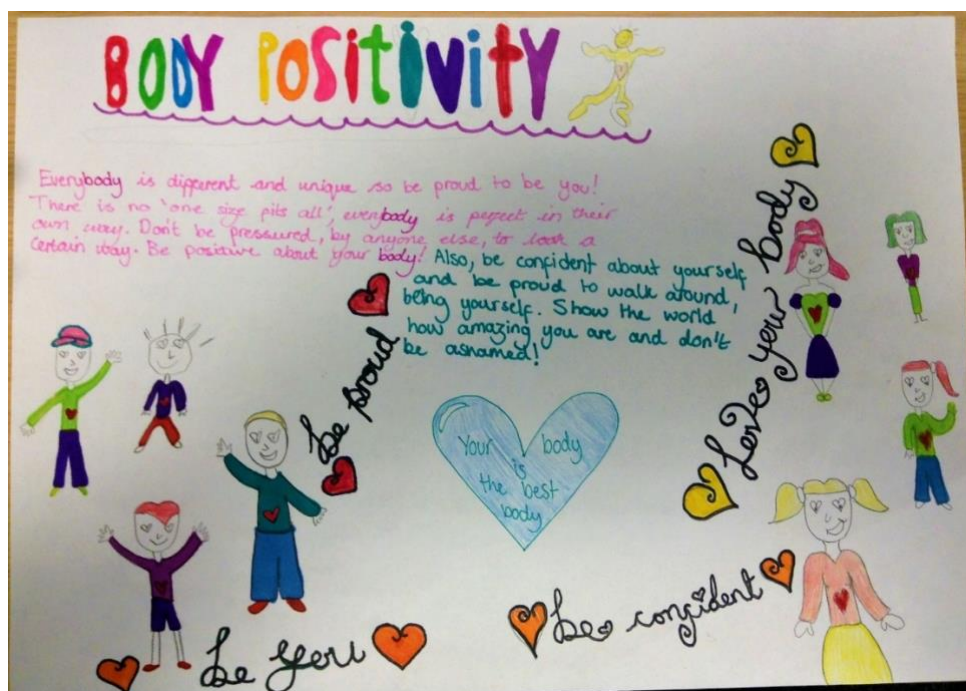 BODY POSITIVITY
Everybody is different and unique so be proud to be you!
There is no 'one size fits all', everybody is perfect in their
own way. Don't be pressured, by anyone else, to look a
certain way. Be positive about your body!
Also, be confident about yourself
and be proud to walk around,
being yourself. Show the world
how amazing you are and don't
be ashamed!
be proud
Love your body
Your body
is
the best
body
be confident
be you